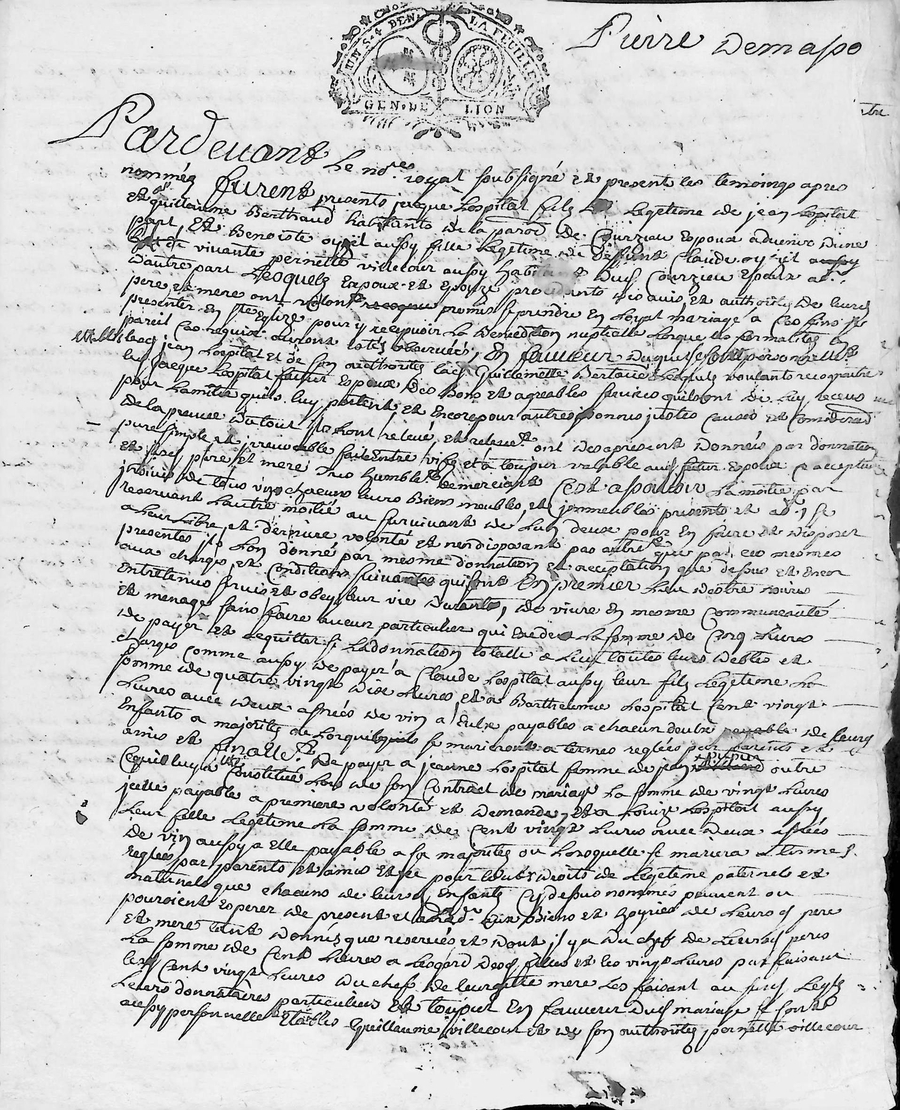 Pierre Demaspo
HUIT S. 4 DEN. LA FEUILLE
GEN. DE LION
Pardevant Le no.re royal soubsigné et present les temoings apres
nommés furent presents jacque hospital fils Legetime de jean hospital
et guillaume Berthaud habitants de la paro. De Courzieu Espoux advenir dune
part, Et Benoiste oyzel aussy fille Legetime de deffunt Claude oyzel
et de vivante pernette villecour aussy habit Dud. Courzieu Espouse ad.
Dautre part Lesquels Espoux et Espouze procedants de avis et authorités de leursd
pere et mere ont volont.t promis se prendre en Loyal mariage a ces fins se
presenter En s.te Eglize pour y recepvoir La Benediction nuptialle Lorsque les formalités en
pareil Cas requises auront Estés observées; En faveur Duquel sont personnellem.t
establis led jean hospital et de son authorités lad Guillemette Bertaud Lesquels voulants recognoitre
led jacque hospital futur Espoux des bons et agreables services quils ont de luy receus
pour Lamitié quils luy portent et Encore pour autres bonnes justes causes et Considerao
De la preuve Du tout ils Lont relevé et relevent ont des apresent Donnés par donnation
pure simple et irrevocable faite Entre vifs et a toujour valable aud. futur Espoux ce acceptant
et sesd pere et mere tres humblem.t remerciant C'est a sçavoir La moitié par
indivis de tous un chacuns leurs Biens meubles et immeubles presents et ad. se
reservant Lautre moitié au survivant de Lun deux pour En faire et Disposer
a leur Libre et derniere volonte et nendisposant pas autrem.t que par ces mesmes
presentes ils Lon donné par mesme donnation et acceptation que dessus et Encor
aux charges et Conditions suivantes qui sont En premier Lieu destre nouris
Entretenus servis et obeys leur vie Durants, de vivre En mesme Communeauté
et menage sans faire aucun particulier qui Excede La somme de Cinq Livres
De payer et acquitter si La donnation totalle a Lieu toutes leurs debtes et
charges comme aussy De payer a Claude hospital aussy leur fils Legetime La
somme de quatre vingt dix Livres et a Barthelemie hospital Cent vingt
Livres avec Deux asnées de vin a Eulx payables a chacun doubx de leurs
Enfants a majorités ou Lorsquils se marieront a termes reglées par parents et
amis et finallem.t De payer a jeanne hospital femme de jean outre
Ce quil luy a Constitué Lors de son Contrat de mariage La somme de vingt Livres
jcelle payable a premiere volonté et Demande, et a Louize hospital aussy
Leur fille Legetime La somme de Cent vingt Livres avec Deux asnées
De vin aussy a elle payable a sa majorités ou Lorsquelle se mariera a termes
reglées par parents et amis Et ce pour tous droits de Legetime paternels et
maternels que chacuns de leursd Enfants Cy dessus nommés peuvent ou
pouroient Esperer de present et aladv. aux Biens et hoyries de leursd pere
et mere tant Donnés que reservés et dont il y a du chef de leursd peres
La somme de Cent Livres a Legard desd filles et les vingt Livres par faisant
les Cent vingt Livres Du chef de leurditte mere Les faisant au surplus
Leurs donnataires particuliers Et toujour En faveur Dud mariage se sont
aussy personnellem.t Etablis Guillaume villecour et de son authorités pernette villecour